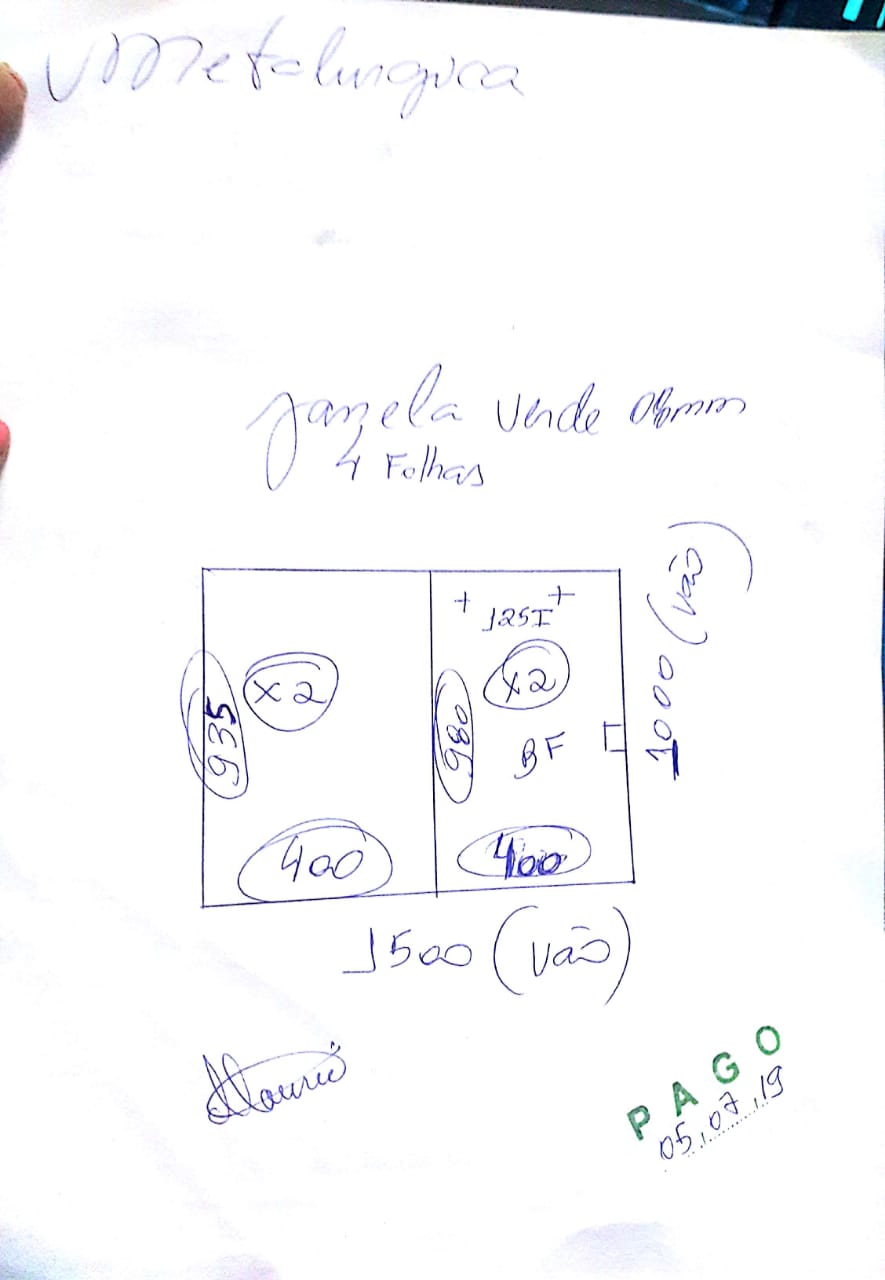 Metalurgica
Janela Verde 08mm
4 Folhas
+ +
125I
x2
x2
935
980
BF
1000 (vão)
400
400
1500 (vão)
PAGO
05,07,19